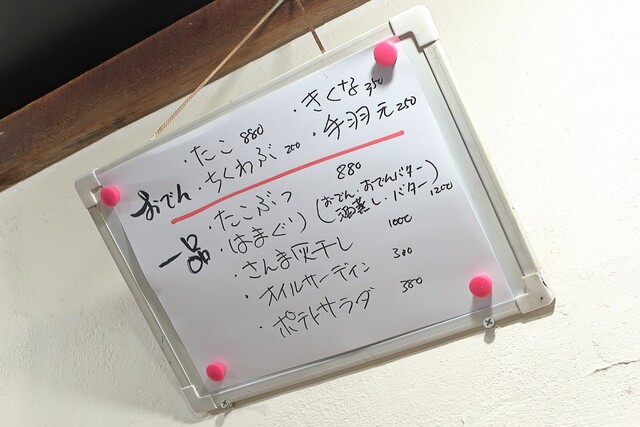 おでん
・たこ 880
・きくな 350
・ちくわぶ 200
・手羽元 250
一品
・たこぶつ 880
・はまぐり (おでん、おでんバター 酒蒸し・バター) 1200
・さんま灰干し 1000
・オイルサーディン 380
・ポテトサラダ 380